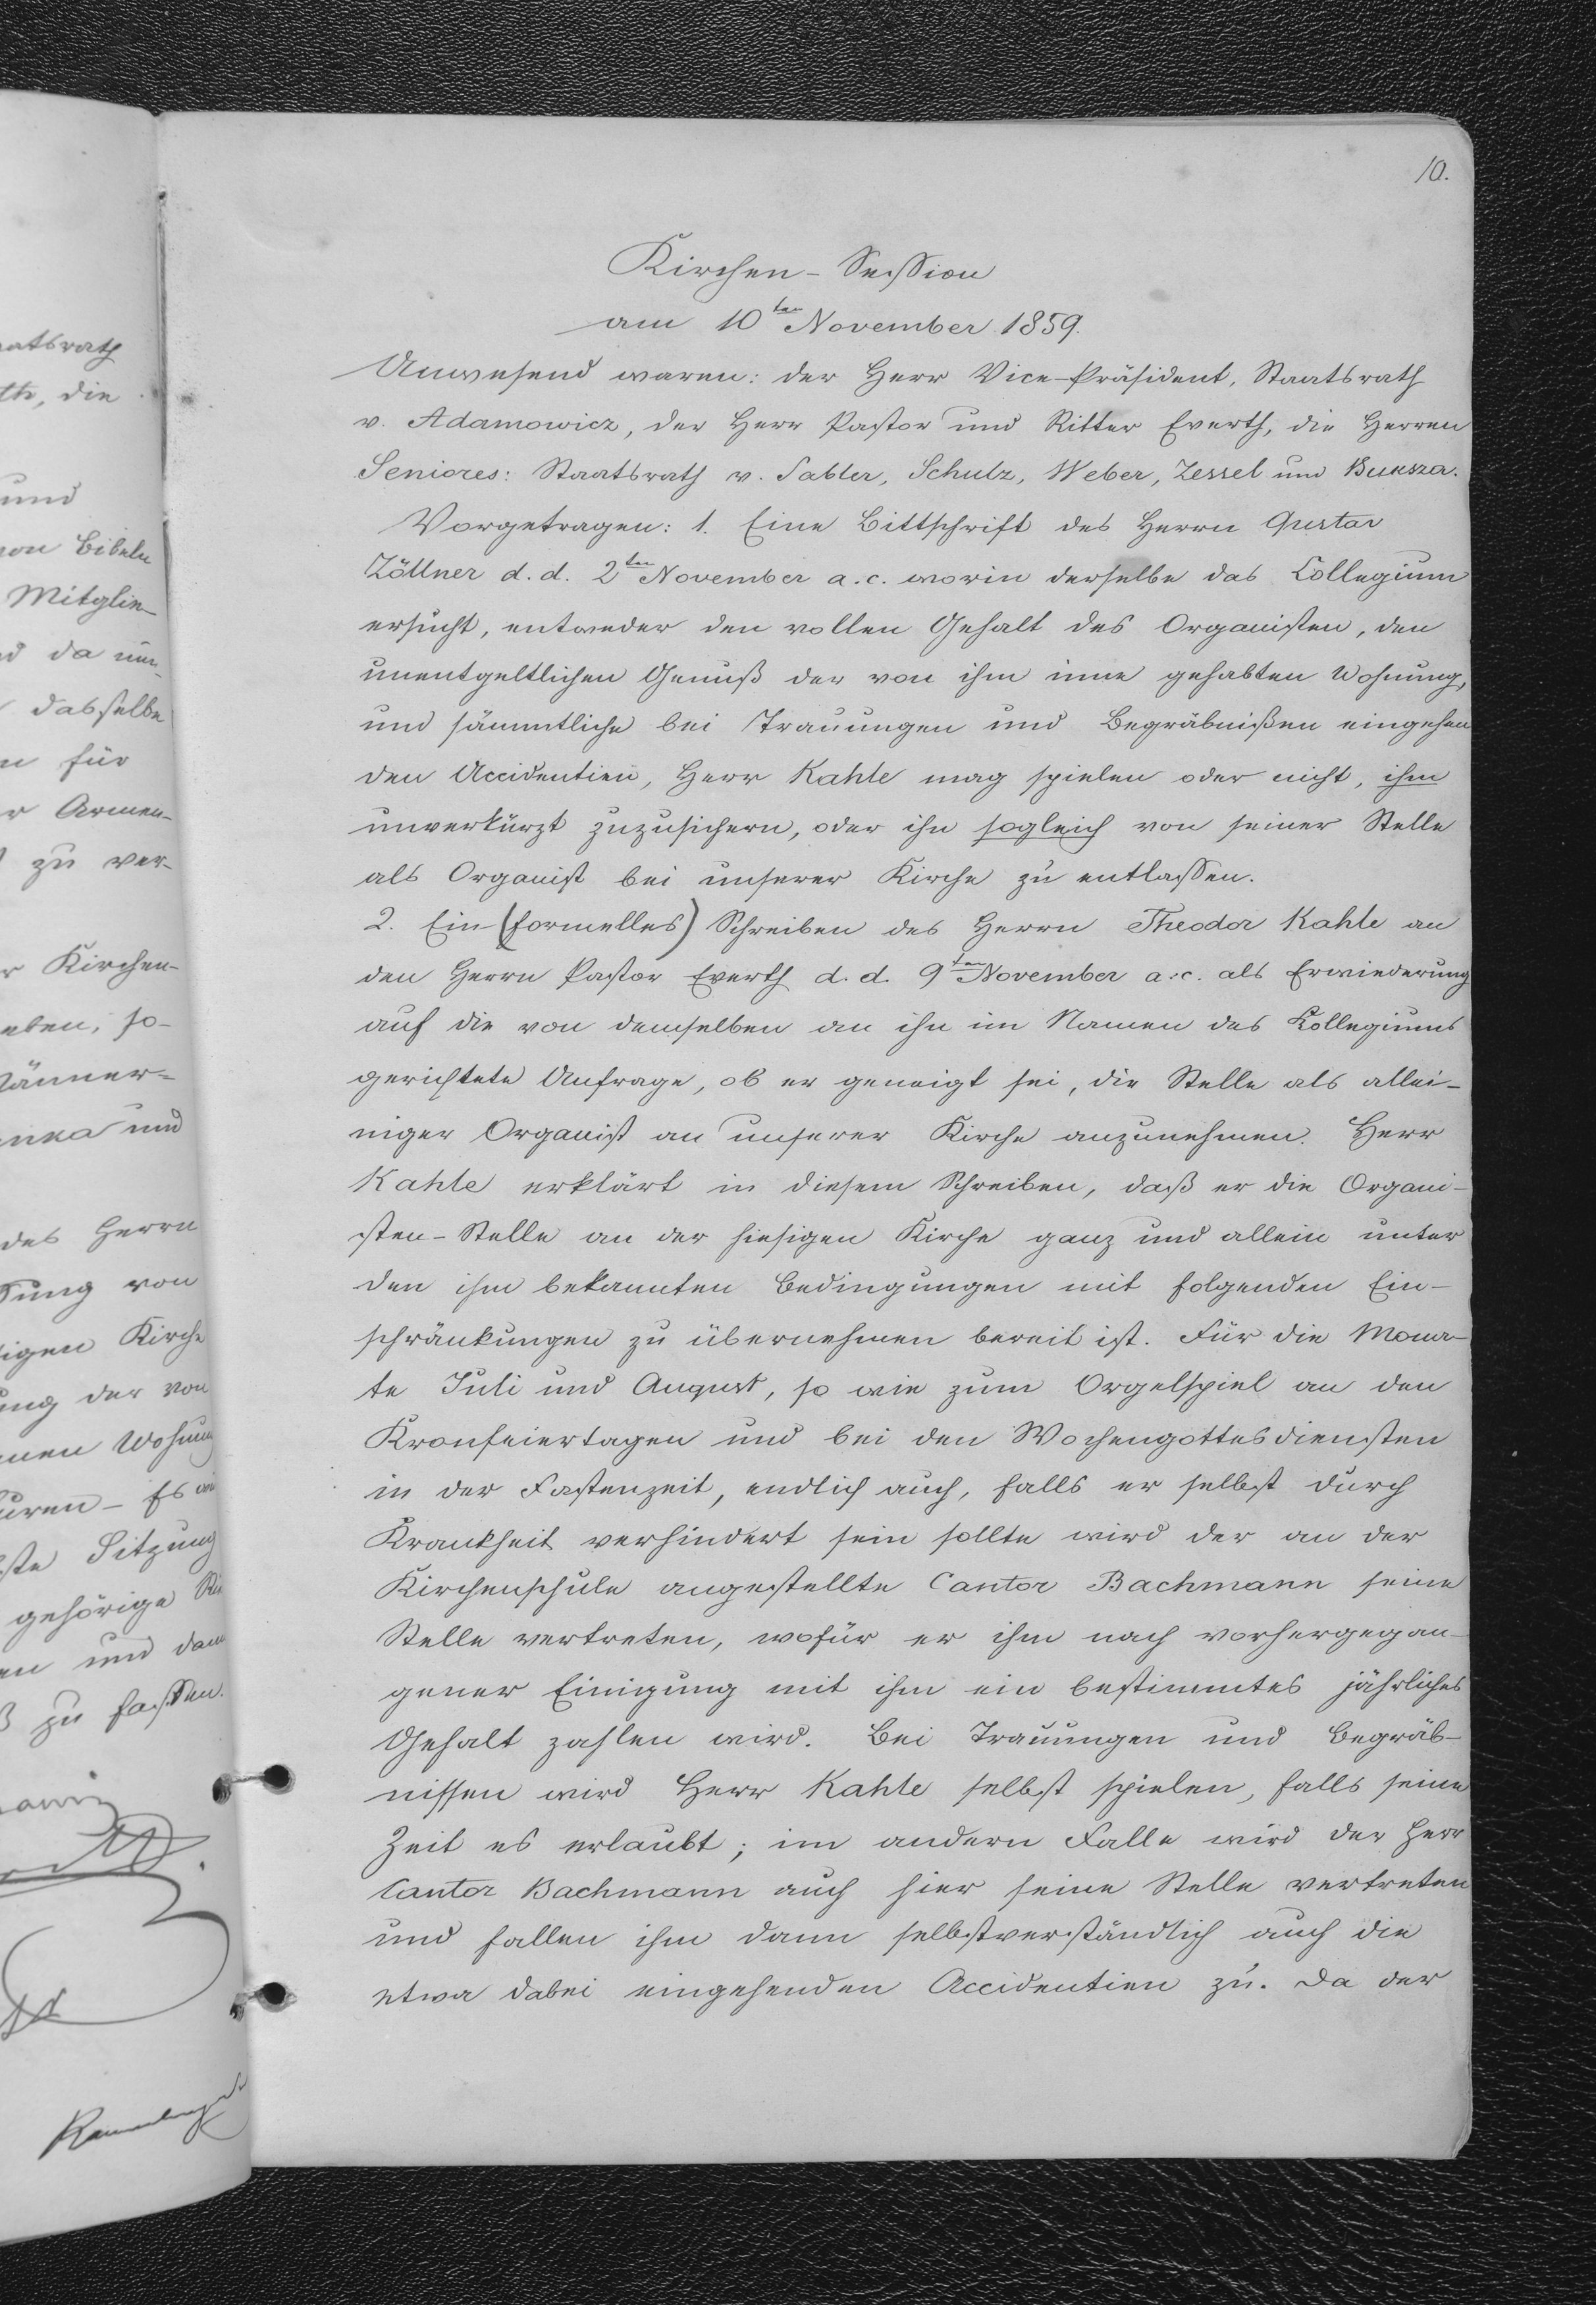 10.
Kirchen-Session
am 10ten November 1859.
Anwesend waren: der Herr Vice-Präsident, Staatsrath
v. Adamowicz, der Herr Pastor und Ritter Everth, die Herren
Seniores: Staatsrath v. Sabler, Schulz, Weber, Zessel und Buksza.
Vorgetragen: 1. Eine Bittschrift des Herrn Gustav
Zöllner d. d. 2ten November a. c. worin derselbe das Collegium
ersucht, entweder den vollen Gehalt des Organisten, den
unentgeltlichen Genuß der von ihm inne gehabten Wohnung,
und sämmtliche bei Trauungen und Begräbnißen eingehen
den Accidentien, Herr Kahle mag spielen oder nicht, ihm
unverkürzt zuzusichern, oder ihn sogleich von seiner Stelle
als Organist bei unserer Kirche zu entlassen.
2. Ein (formelles) Schreiben des Herrn Theodor Kahle an
den Herrn Pastor Everth d. d. 9ten November a. c. als Erwiederung
auf die von demselben an ihn im Namen des Kollegiums
gerichtete Anfrage, ob er geneigt sei, die Stelle als allei-
niger Organist an unserer Kirche anzunehmen. Herr
Kahle erklärt in diesem Schreiben, daß er die Organi-
sten-Stelle an der hiesigen Kirche ganz und allein unter
den ihm bekannten Bedingungen mit folgenden Ein-
schränkungen zu übernehmen bereit ist. Für die Mona-
te Juli und August, so wie zum Orgelspiel an den
Kronfeiertagen und bei den Wochengottesdiensten
in der Fastenzeit, endlich auch, falls er selbst durch
Krankheit verhindert sein sollte wird der an der
Kirchenschule angestellte Cantor Bachmann seine
Stelle vertreten, wofür er ihm nach vorhergegan-
gener Einigung mit ihm ein bestimmtes jährliches
Gehalt zahlen wird. Bei Trauungen und Begräb-
nissen wird Herr Kahle selbst spielen, falls seine
Zeit es erlaubt; im andern Falle wird der Herr
Cantor Bachmann auch hier seine Stelle vertreten
und fallen ihm dann selbstverständlich auch die
etwa dabei eingehenden Accidentien zu. Da der